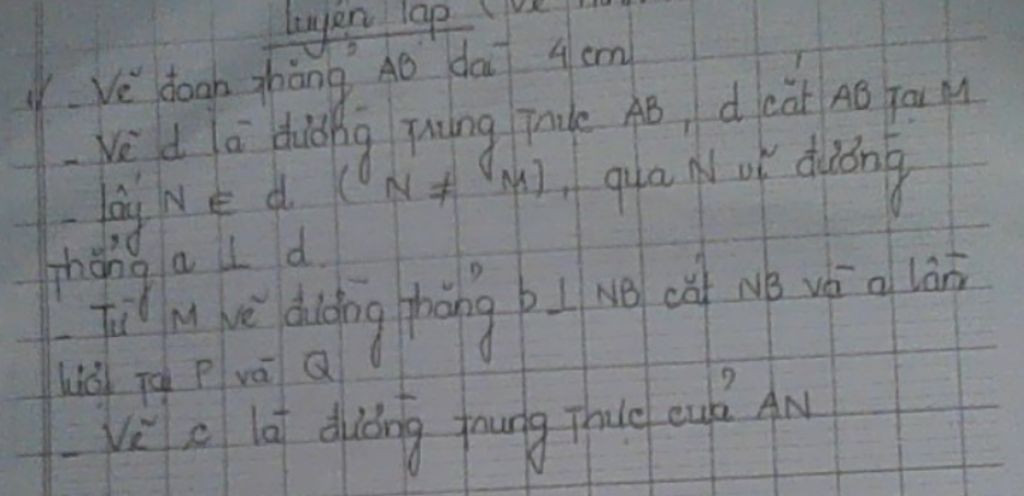 luyện lập (Vẽ
1/ - Vẽ đoạn thẳng AB dài 4 cm
- Vẽ d là đường trung trực AB, d cắt AB Tại M
- lấy N ∈ d (N ≠ M), qua N vẽ đường
thẳng a ⊥ d
- Từ M vẽ đường thẳng b ⊥ NB cắt NB và a lần
lượt Tại P và Q
- Vẽ c là đường trung Thực của AN